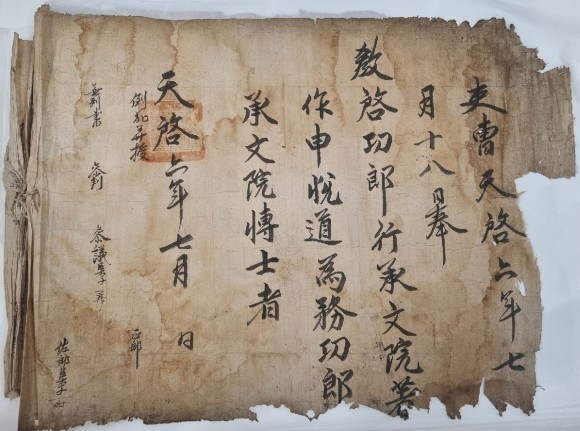 吏曹天啓六年七
月十八日奉
教啓功郎行承文院著
作申悅道為務功郎
承文院博士者
天啓六年七月 日
例加
判書 參判 參議臣 正郎 佐郎臣